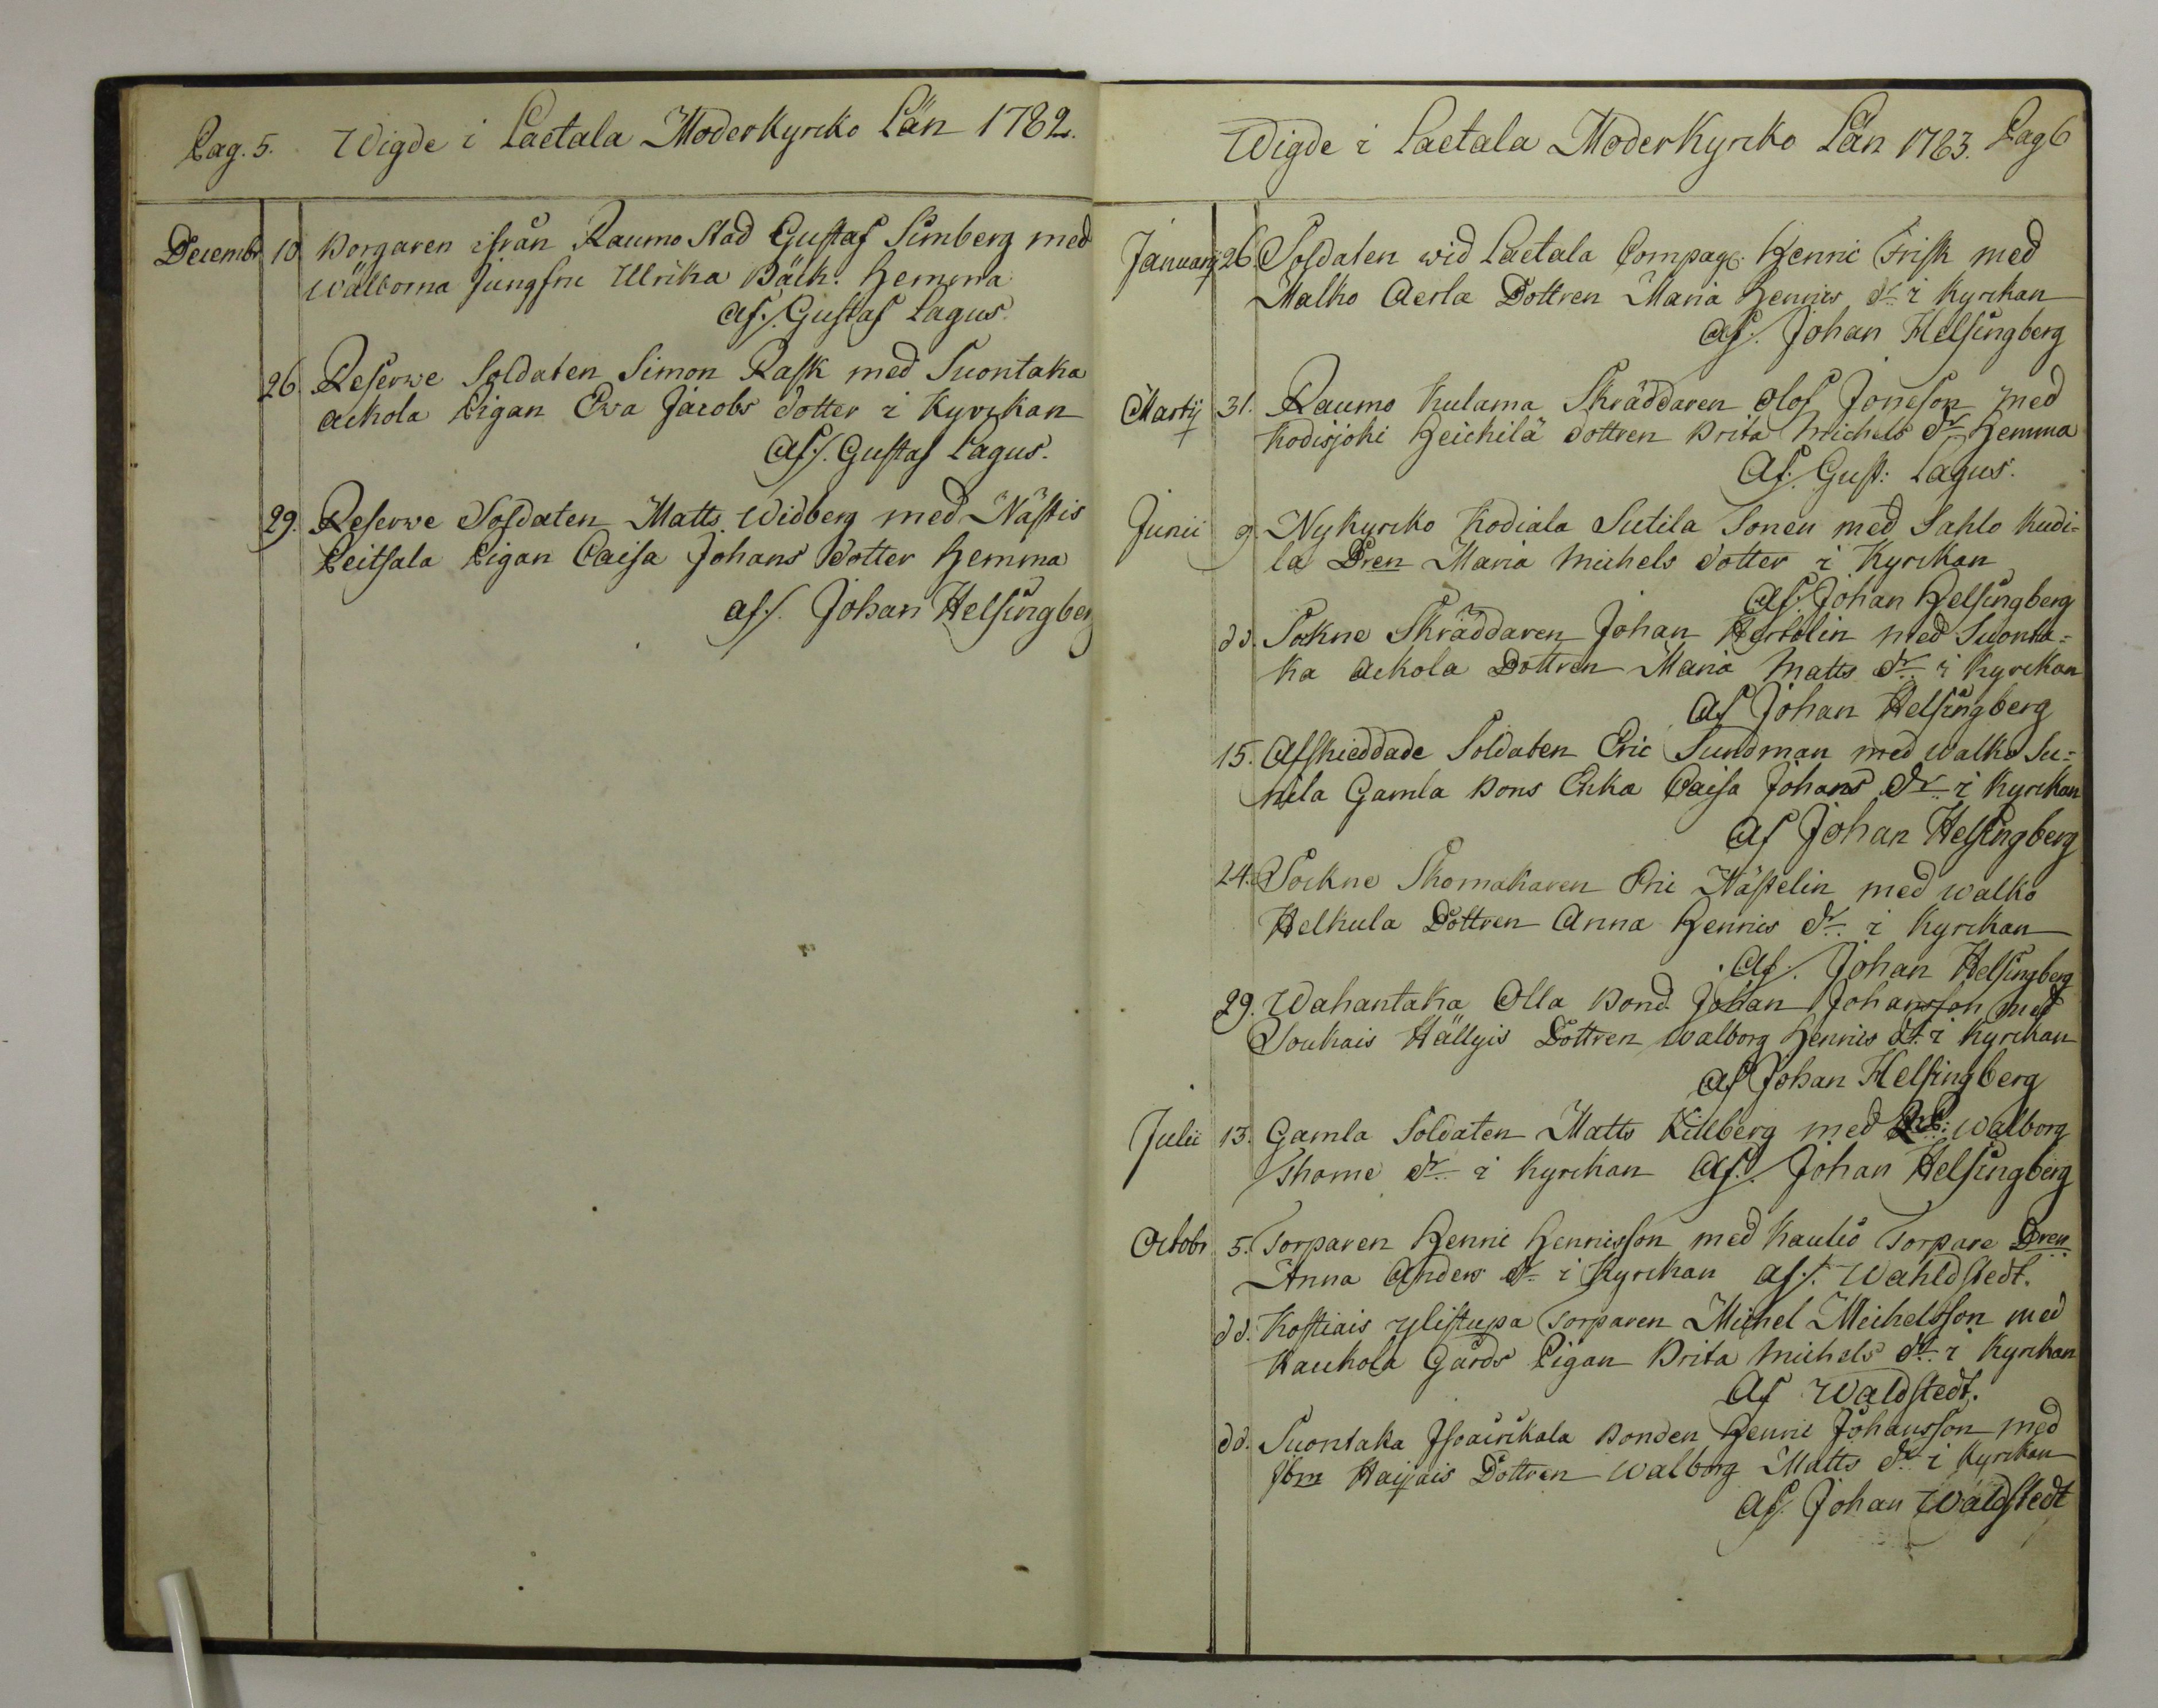 Pag. 5. Wigde i Laetala Moderkyrcko Län 1782.
Decembr 10 Borgaren ifrån Raumo Stad Gustaf Simberg med
wälborna Jungfru Ulrika Bäck. Hemma
Af./. Gustaf Lagus.
26. Reserwe Soldaten Simon Rask med Suontaka
Ackola Pigan Eva Jacobs dotter i Kyrckan
Af./. Gustaf Lagus.
29. Reserwe Soldaten Matts Widberg med Nästis
Peitsala Pigan Caisa Johans dotter Hemma
af./. Johan Helsingberg
Wigde i Laetala ModerKyrcko Län 1783. Pag 6
Januarij 26. Soldaten wid Laetala Compag. Henric Frisk med
Malko Aerla Dottren Maria Henrics dr. i Kyrckan
Af. Johan Helsingberg
Martij 31. Raumo Kulama Skräddaren Olof Joneson med
Kodisjoki Heickilä dottren Brita Michels dr Hemma
Af. Gust: Lagus.
Junii 9. Nykyrcko Kodiala Sutila Sonen med Sahlo Kudi=
la Dren Maria Michels dotter i Kyrckan
Af. Johan Helsingberg
dd. Sokne Skräddaren Johan Hertolin med Suonta=
ka Ackola Dottren Maria Matts dr. i Kyrckan
Af Johan Helsingberg
15. Afskieddade Soldaten Eric Sundman med walko Su=
nila Gamla Bons Enka Caisa Johans dr. i Kyrckan
Af Johan Helsingberg
24. Sockne Skomakaren Eric Nästelin med walko
Helkula Dottren Anna Henrics dr. i Kyrckan
Af. Johan Helsingberg
29. Wahantaka Olla Bond. Johan Johansson med
Soukais Hällyis Dottren Walborg Henrics dr. i Kyrckan
Af Johan Helsingberg
Julii 13. Gamla Soldaten Matts Killberg med walborg
Thome dr. i Kyrckan Af./. Johan Helsingberg
Octobr 5. Torparen Henric Henricsson med Kaulio Torpare Dren
Anna Anders dr. i Kyrckan af./. Wahldstedt.
dd. Kostiais Ylistupa Torparen Michel Michelsson med
Kaukola Gårds Pigan Brita Michels dr. i Kyrckan
Af Waldstedt.
dd. Suontaka Isoairikala Bonden Henric Johansson med
Ibm Haijais Dottren Walborg Matts dr. i Kyrckan
Af. Johan Waldstedt